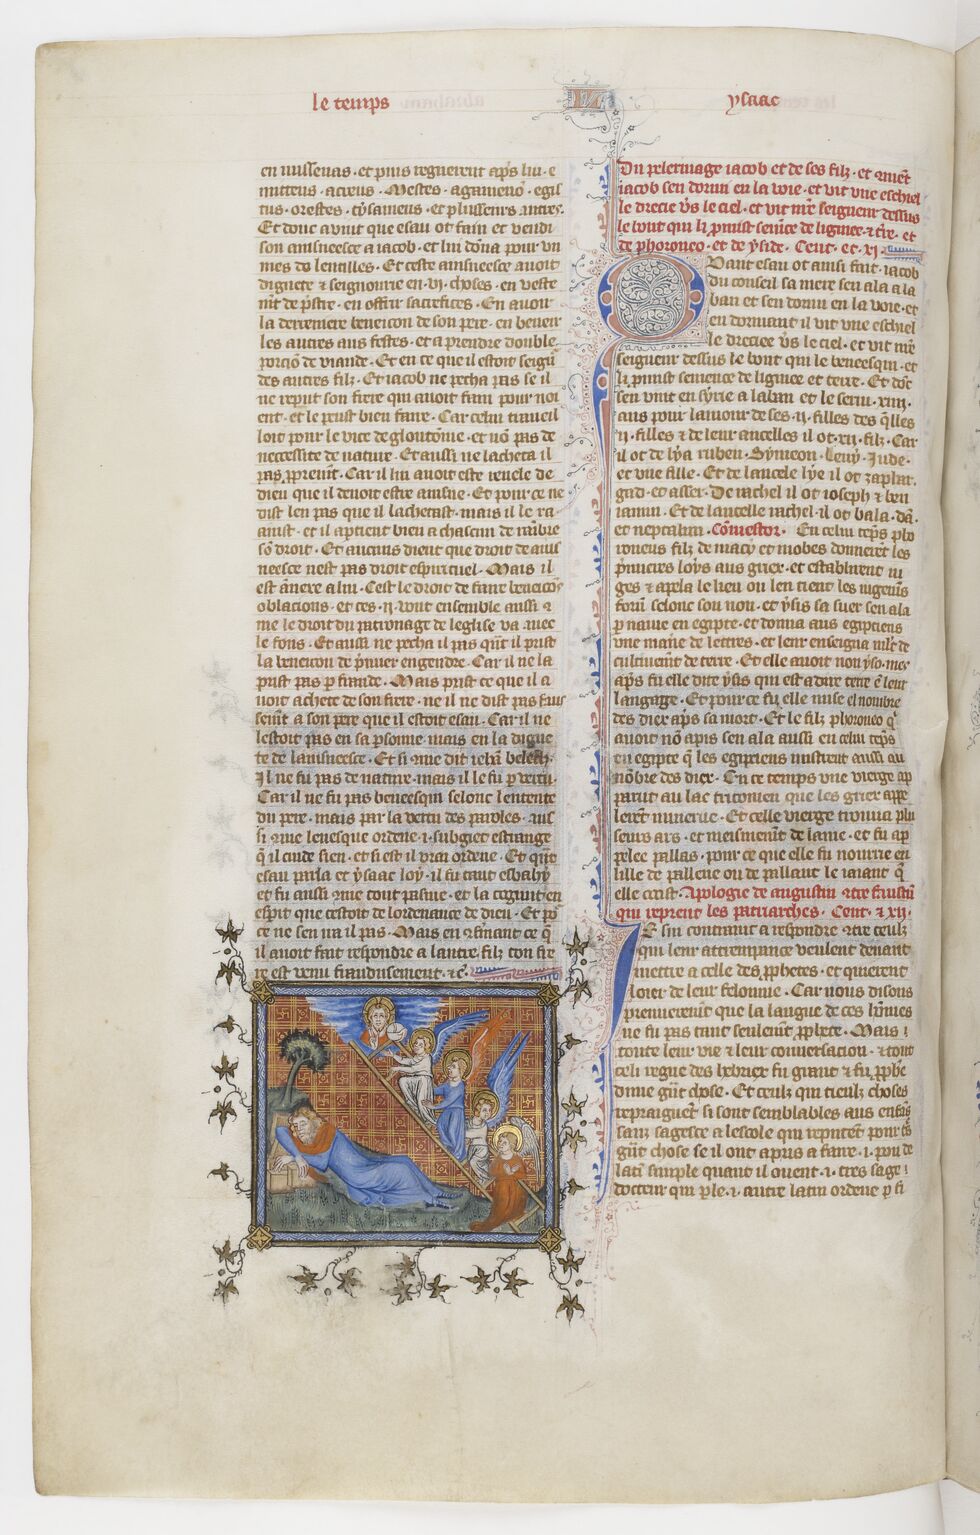 le temps
ysaac
en missenas · et puis regnerent aps̃ lui · e
uristeus · atreus · Mestes · agamenõ · egis
tus · orestes · tysameus · et plusseurs autres.
Et donc avint que esau ot faim et vendi
son ainsneesce a iacob · et lui dõna pour vn
mes de lentilles · Et ceste ainsneesce auoit
dignete ⁊ seignourie en · vi · choses · en veste
mẽt de pr̃stre · en offrir sacrefices · En auoir
la derreniere beneicon de son pere · en beneir
les autres aus festes · et a prendre double
porciõ de viande · Et en ce que il estoit seignr̃
des autres filz · Et iacob ne pecha pas se il
ne reput son frere qui auoit faim pour noi
ent · et le peust bien faire · Car celui traueil
loit pour le vice de gloutõnie · et nõ pas de
neccessite de nature · Et aussi ne lacheta il
pas ꝓprement · Car il lui auoit este reuele de
dieu que il deuoit estre ainsne · Et pour ce ne
dist len pas que il lachetast · mais il le ra
amst · et il aptient bien a chascun de rãbre
sõ droit · Et aucuns dient que droit de ains
neesce nest pas droit espirituel · Mais il
est ãnexe a lui · Cest le droit de faire beneicõs
oblacions · et ces · ii · vont ensemble aussi ⁊
me le droit du patronage de leglise va avec
le fons · Et aussi ne pecha il pas quãt il prist
la beneicon de pr̃mier engendre · Car il ne la
prist pas p fraude · Mais prist ce que il a
uoit achete de son frere · ne il ne dist pas faus
semẽt a son pere que il estoit esau · Car il ne
lestoit pas en sa psonne mais en la digne
te de lainsneesce · Et si ⁊me dit iehã beleth ·
Il ne fu pas de nature · mais il le fu p vertu ·
Car il ne fu pas beneesqui selonc lentente
du pere · mais par la vertu des paroles · aus
si ⁊me leuesque ordene · i · subgiet estrange
q̃ il cuide sien · et si est il vrai ordene · Et quãt
esau parla et ysaac loy · il fu tout esbahy
et fu aussi ⁊me tout pasme · et la cognut en
esp̃rit que cestoit de lordenance de dieu · Et po
ce ne sen ira il pas · Mais en ⁊fmant ce q̃
il auoit fait respondre a lautre filz ton fre
re est venu fraudusement · ⁊ c̃ ·
Du pelerinage iacob et de ses filz · et ⁊mẽt
iacob sen dormi en la voie · et vit vne eschiel
le drecie v̾s le ciel · et vit nr̃e seigneur dessus
le bout qui li pmist semẽce de lignee ⁊ tr̃e · et
de phoroneo · et de yside · Cent · et · xi ·
Quant esau ot ainsi fait · iacob
du conseil sa mere sen ala a la
ban et sen dormi en la voie · et
en dormant il vit vne eschiel
le dreciee v̾s le ciel · et vit nr̃e
seigneur dessus le bout qui le beneesqui · et
li pmist semence de lignee et terre · Et dõc
sen vint en syrie a laban et le serui · xiiii ·
ans pour lamour de ses · ii · filles des q̃lles
ii · filles ⁊ de leur ancelles il ot · xii · filz · Car
il ot de lya ruben · Symeon · Leuy · Iude ·
et vne fille · Et de lancele lye il ot zaphar ·
gad · et asser · De rachel il ot ioseph ⁊ ben
iamin · Et de lancelle rachel · il ot bala · dã ·
et neptalim · Cõmestor · En celui tẽps pho
roneus filz de inacy et niobes donnerẽt les
pr̃mieres loys aus griex · et establirent iu
ges ⁊ apela le lieu ou len tient les iugemẽs
forũ selonc son non · et ysis sa suer sen ala
p nauie en egipte · et donna aus egipciens
vne mañe de lettres · et leur enseigna mlt̃ de
cultiuement de terre · Et elle auoit non yso · mes
aps̃ fu elle dite ysis qui est a dire terre ẽ leur
langage · Et pour ce fu elle mise el nombre
des diex aps̃ sa mort · Et le filz phoroneo q̃
auoit nõ apis sen ala aussi en celui tẽps
en egipte q̃ les egipciens mistrent aussi au
nõbre des diex · En ce temps vne vierge ap
parut au lac tritonien que les griex appe
lerẽt minerue · Et celle vierge trouua plu
seurs ars · et meismemẽt de laine · et fu ap
pelee pallas · pour ce que elle fu nourrie en
lille de pallene ou de pallant le iaiant q̃
elle occist · Apologie de augustin ⁊tre faustũ
qui reprent les patriarches · Cent · ⁊ xii ·
E sui contraint a respondre ⁊tre ceulz
qui leur attrempance veulent deuant
mettre a celle des ꝓphetes · et quierent
loier de leur felonnie · Car nous disons
premierement que la langue de ces hõmes
ne fu pas tant seulemt̃ ꝓphete · Mais i
toute leur vie ⁊ leur conuersacion · ⁊ tout
celi regne des hebriex fu grant ⁊ fu ꝓphe
dune grãt chose · Et ceulz qui tieulz choses
repraignẽt si sont semblables aus enfãs
sanz sagesce a lescole qui reputẽt pour t̃s
grãt chose se il ont apris a faire · i · pou de
latĩ simple quant il oient · i · tres sage
docteur qui ple · i · autre latin ordene p fi